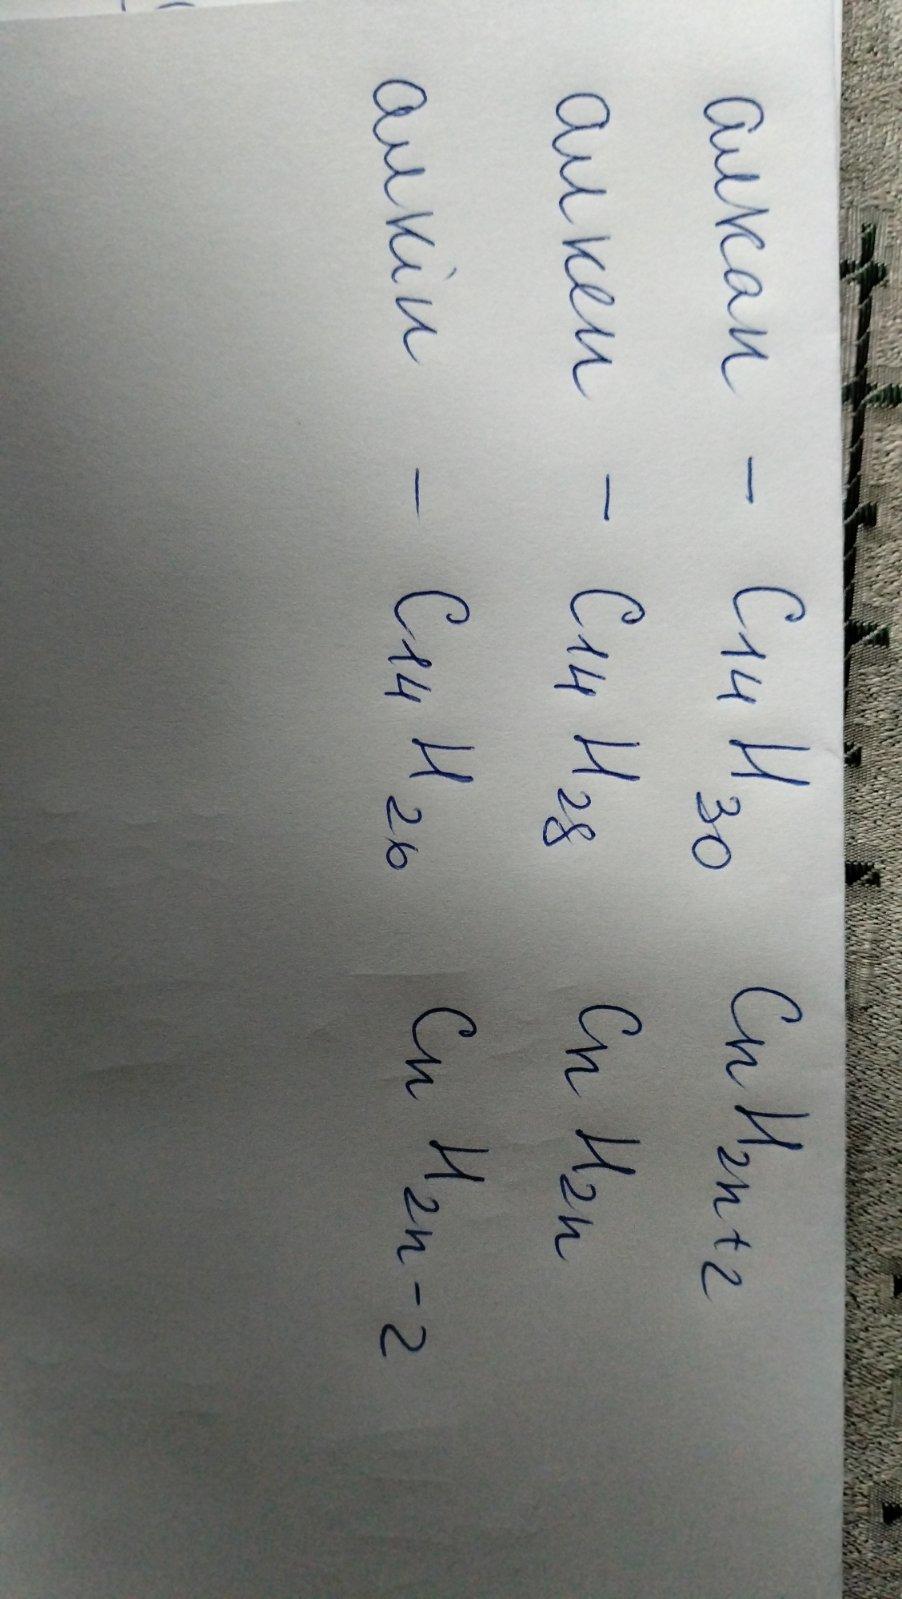 алкан - C14 H30 Cn H2n+2
алкен - C14 H28 Cn H2n
алкін - C14 H26 Cn H2n-2